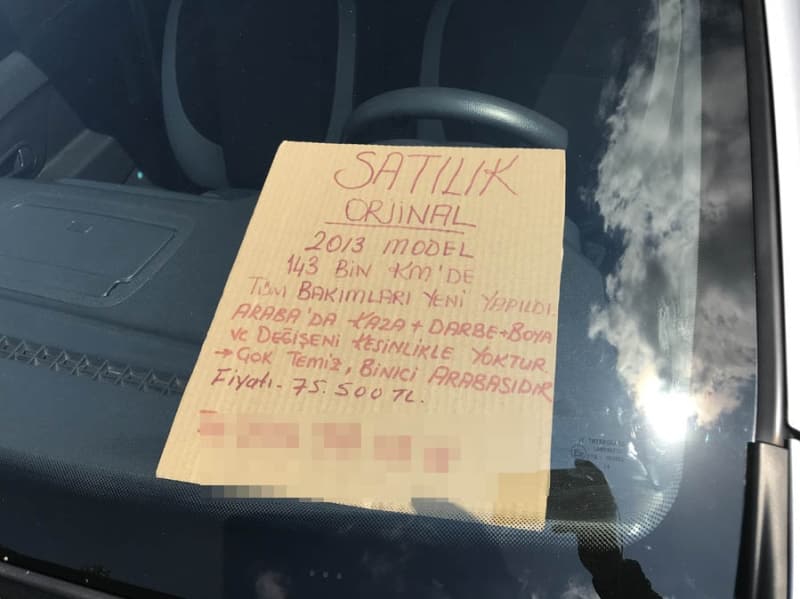 SATILIK
ORJİNAL
2013 MODEL
143 BİN KM'DE
TÜM BAKIMLARI YENİ YAPILDI.
ARABA'DA KAZA + DARBE + BOYA
VE DEĞİŞENİ KESİNLİKLE YOKTUR.
→ ÇOK TEMİZ, BİNİCİ ARABASIDIR
Fiyatı - 75.500 TL.